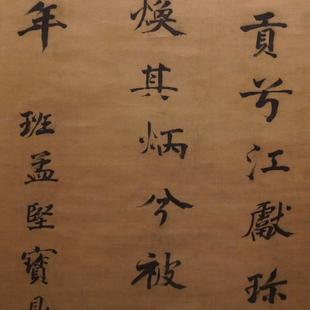 貢兮江獻珎
煥其炳兮被
年 班孟堅寶